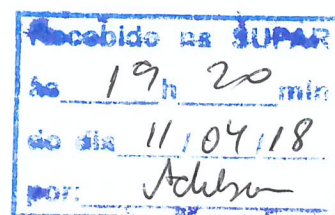 Recebido na SUPAR
às 19 h 20 min
do dia 11/04/18
por: